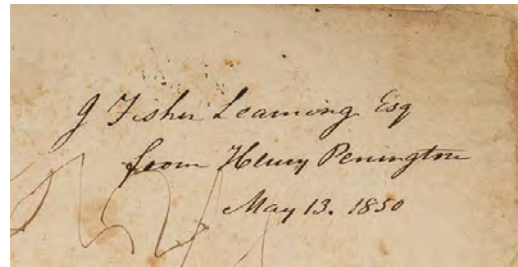 J Fisher Leaming Esq
from Henry Penington
May 13. 1850